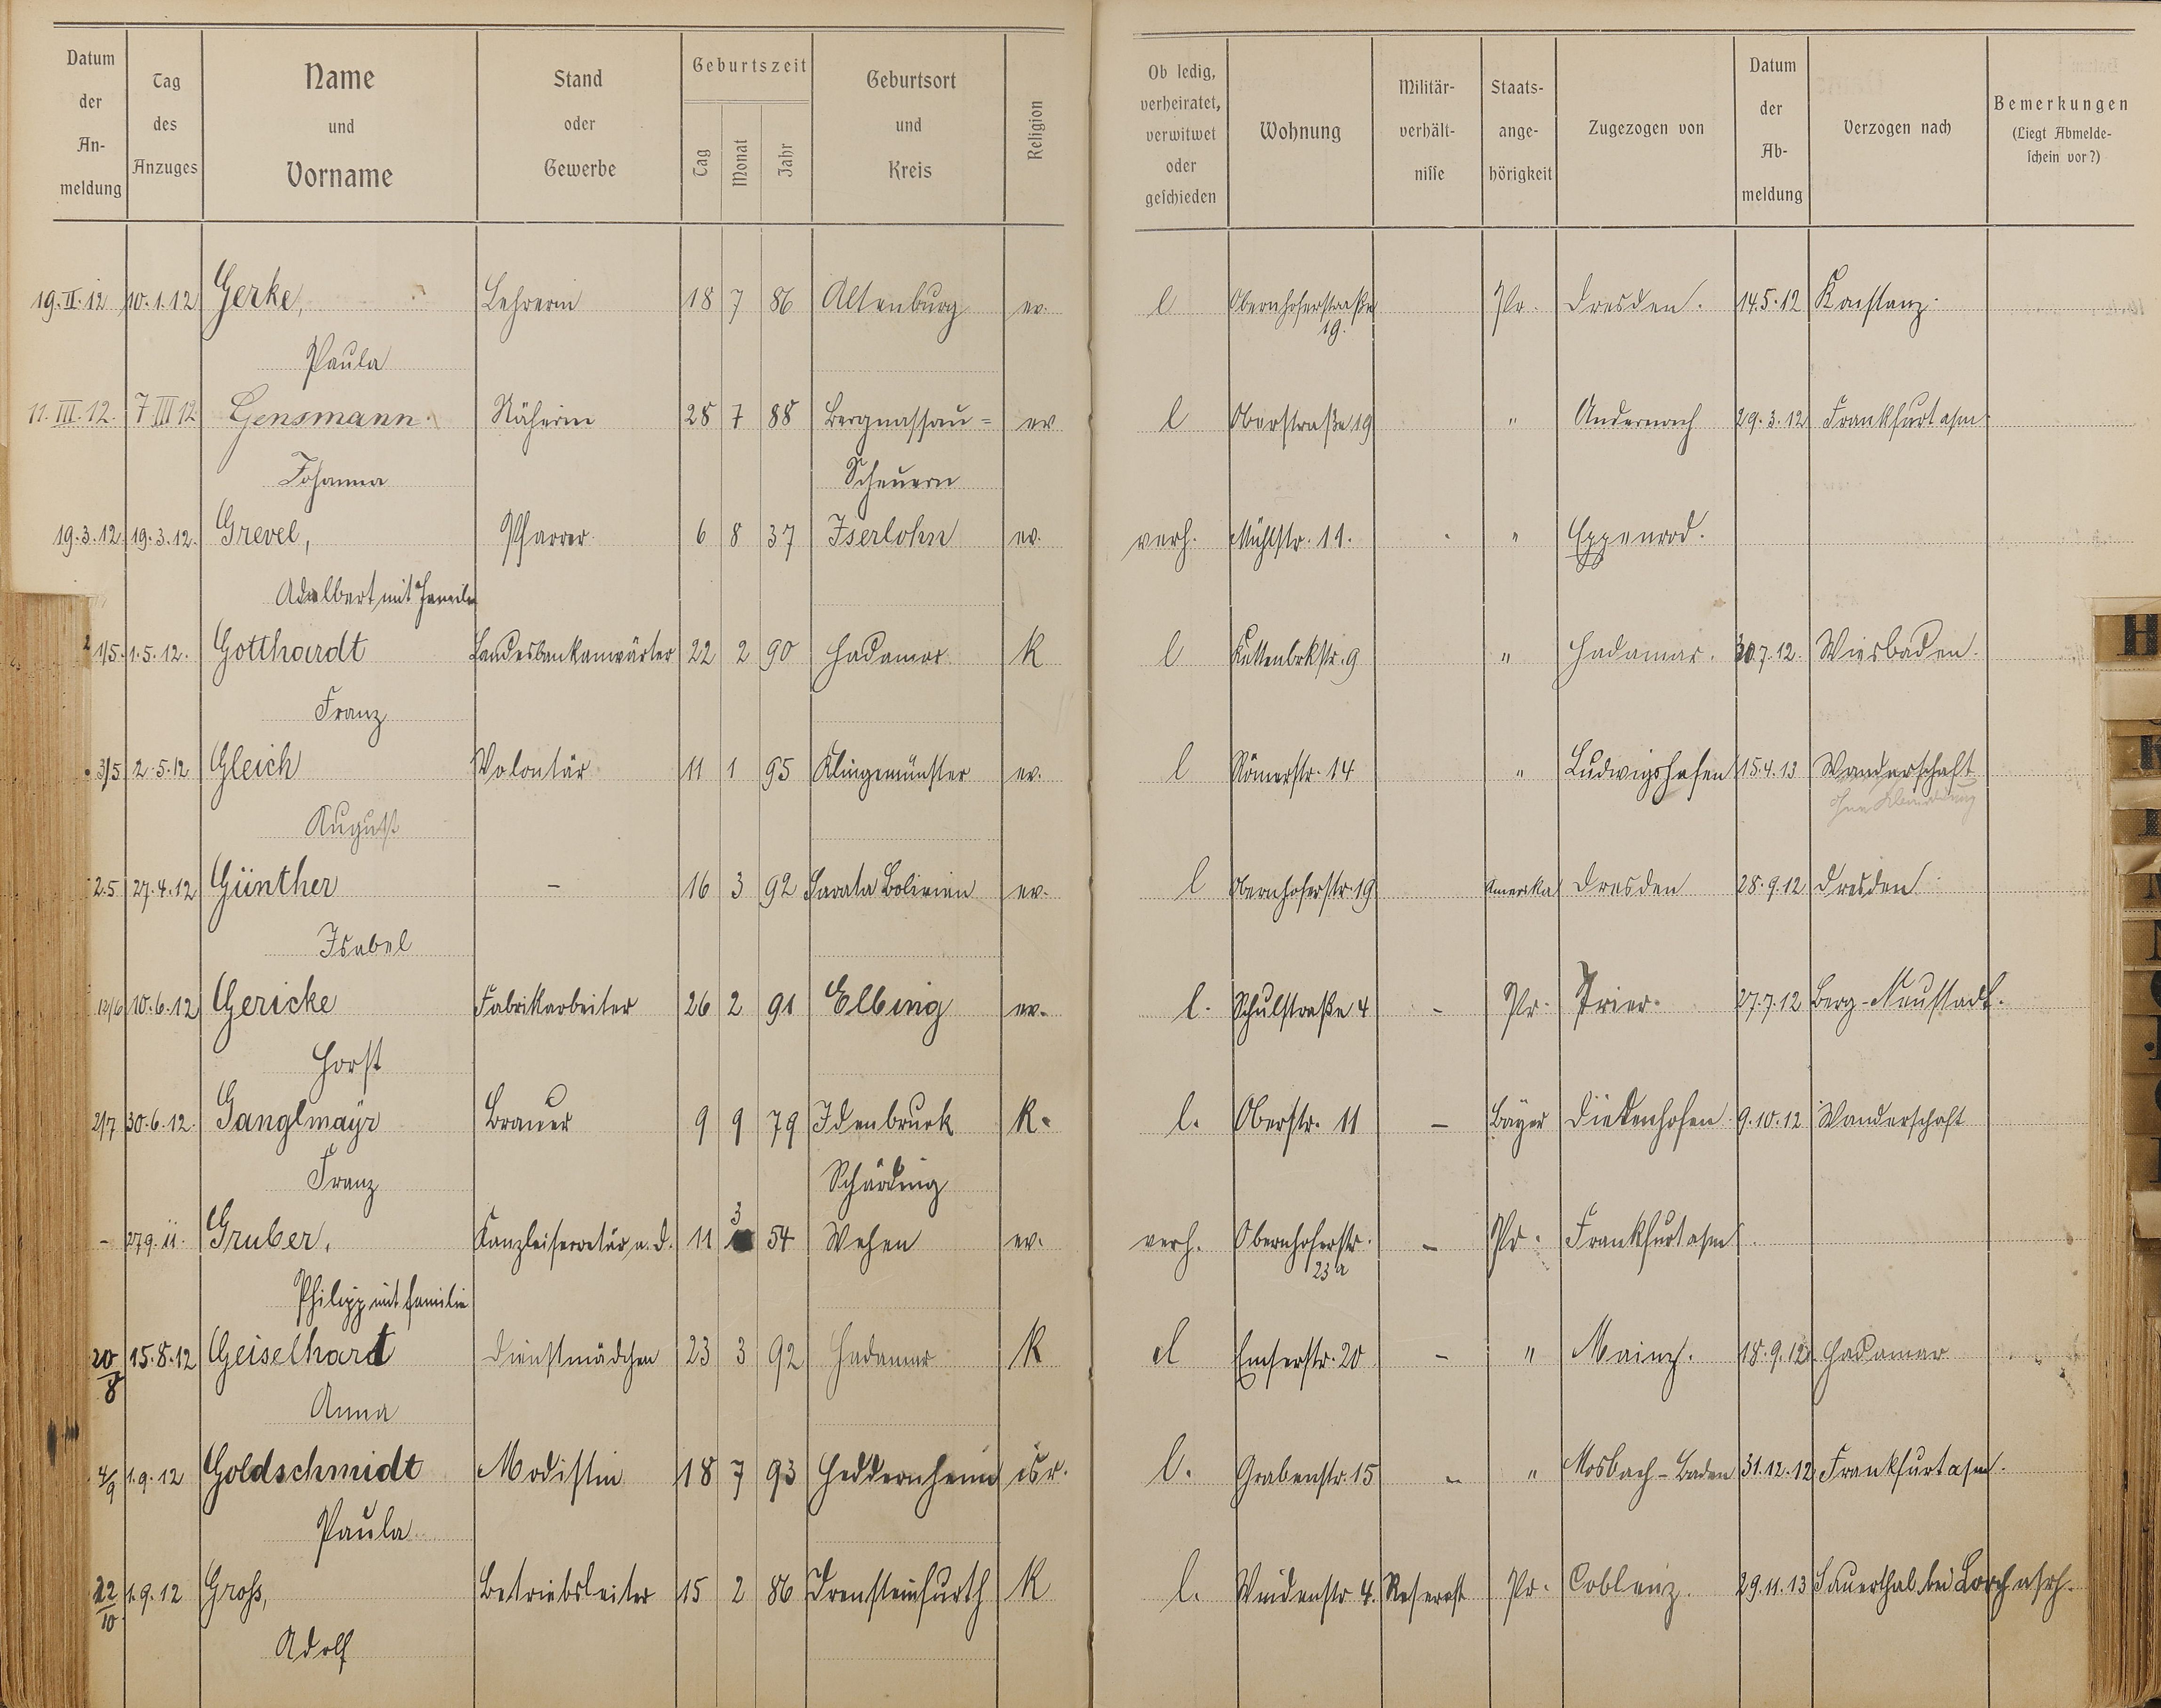 Datum der An-meldung | Tag des Anzuges | Name und Vorname | Stand oder Gewerbe | Geburtszeit Tag Monat Jahr | Geburtsort und Kreis | Religion | Ob ledig, verheiratet, verwitwet oder geschieden | Wohnung | Militär-verhält-nisse | Staats-ange-hörigkeit | Zugezogen von | Datum der Ab-meldung | Verzogen nach | Bemerkungen (Liegt Abmelde-schein vor?)
19.II.12 10.1.12 Gerke, Lehrerin 18 7 86 Altenburg ev. l Obernhoferstraße 19. Pr. Dresden. 14.5.12 Konstanz.
Paula
11.III.12. 7 III 12 Gensmann. Näherin 28 7 88 Bergnassau= ev l Oberstraße 19 " Andernach 29.3.12 Frankfurt a/m
Johanna Scheuern
19.3.12. 19.3.12. Grevel, Pfarrer. 6 8 37 Iserlohn ev. verh. Mühlstr. 11. " Eppenrod.
Adalbert mit Familie
1/5. 1.5.12. Gotthardt Landesbankanwärter 22 2 90 Hadamar K l 9 " Hadamar. 30.7.12. Wiesbaden.
Franz
3/5 2.5.12 Gleich Volontär 11 1 95 Klingemünster ev. l Römerstr. 14 " Ludwigshafen 15.4.13 Wanderschaft
August ohne Abmeldung
2.5 27.4.12 Günther – 16 3 92 Sarata Bolivien ev. l Obernhoferstr. 19 Amerika Dresden 28.9.12 Dresden
Isabel
12/6 10.6.12 Gericke Fabrikarbeiter 26 2 91 Elbing ev. l. Schulstraße 4 – Pr. Trier. 27.7.12 Berg-Neustadt.
Horst
2/7 30.6.12. Ganglmayr Brauer 9 9 79 Idenbruck K. l. Oberstr. 11 – Bayer Diedenhofen 9.10.12 Wanderschaft
Franz Schärding
– 27.9.11. Gruber, Kanzleisecretär a.d. 11 3 54 Wehen ev. verh. Obernhoferstr. 23a – Pr. Frankfurt a/m
Philipp mit Familie
20/8 15.8.12 Geiselhardt Dienstmädchen 23 3 92 Hadamar K l Emserstr. 20 – " Mainz. 18.9.12. Hadamar
Anna
4/9 1.9.12 Goldschmidt Modistin 18 7 93 Heddernheim isr. l. Grabenstr. 15 – " Mosbach-Baden 31.12.12 Frankfurt a/m.
Paula
22/10 1.9.12 Groß, Betriebsleiter 15 2 86 Drensteinfurth K l. Weidenstr 4. Reservist Pr. Coblenz. 29.11.13 Sauerthal bei Lorch a/rh.
Adolf
H